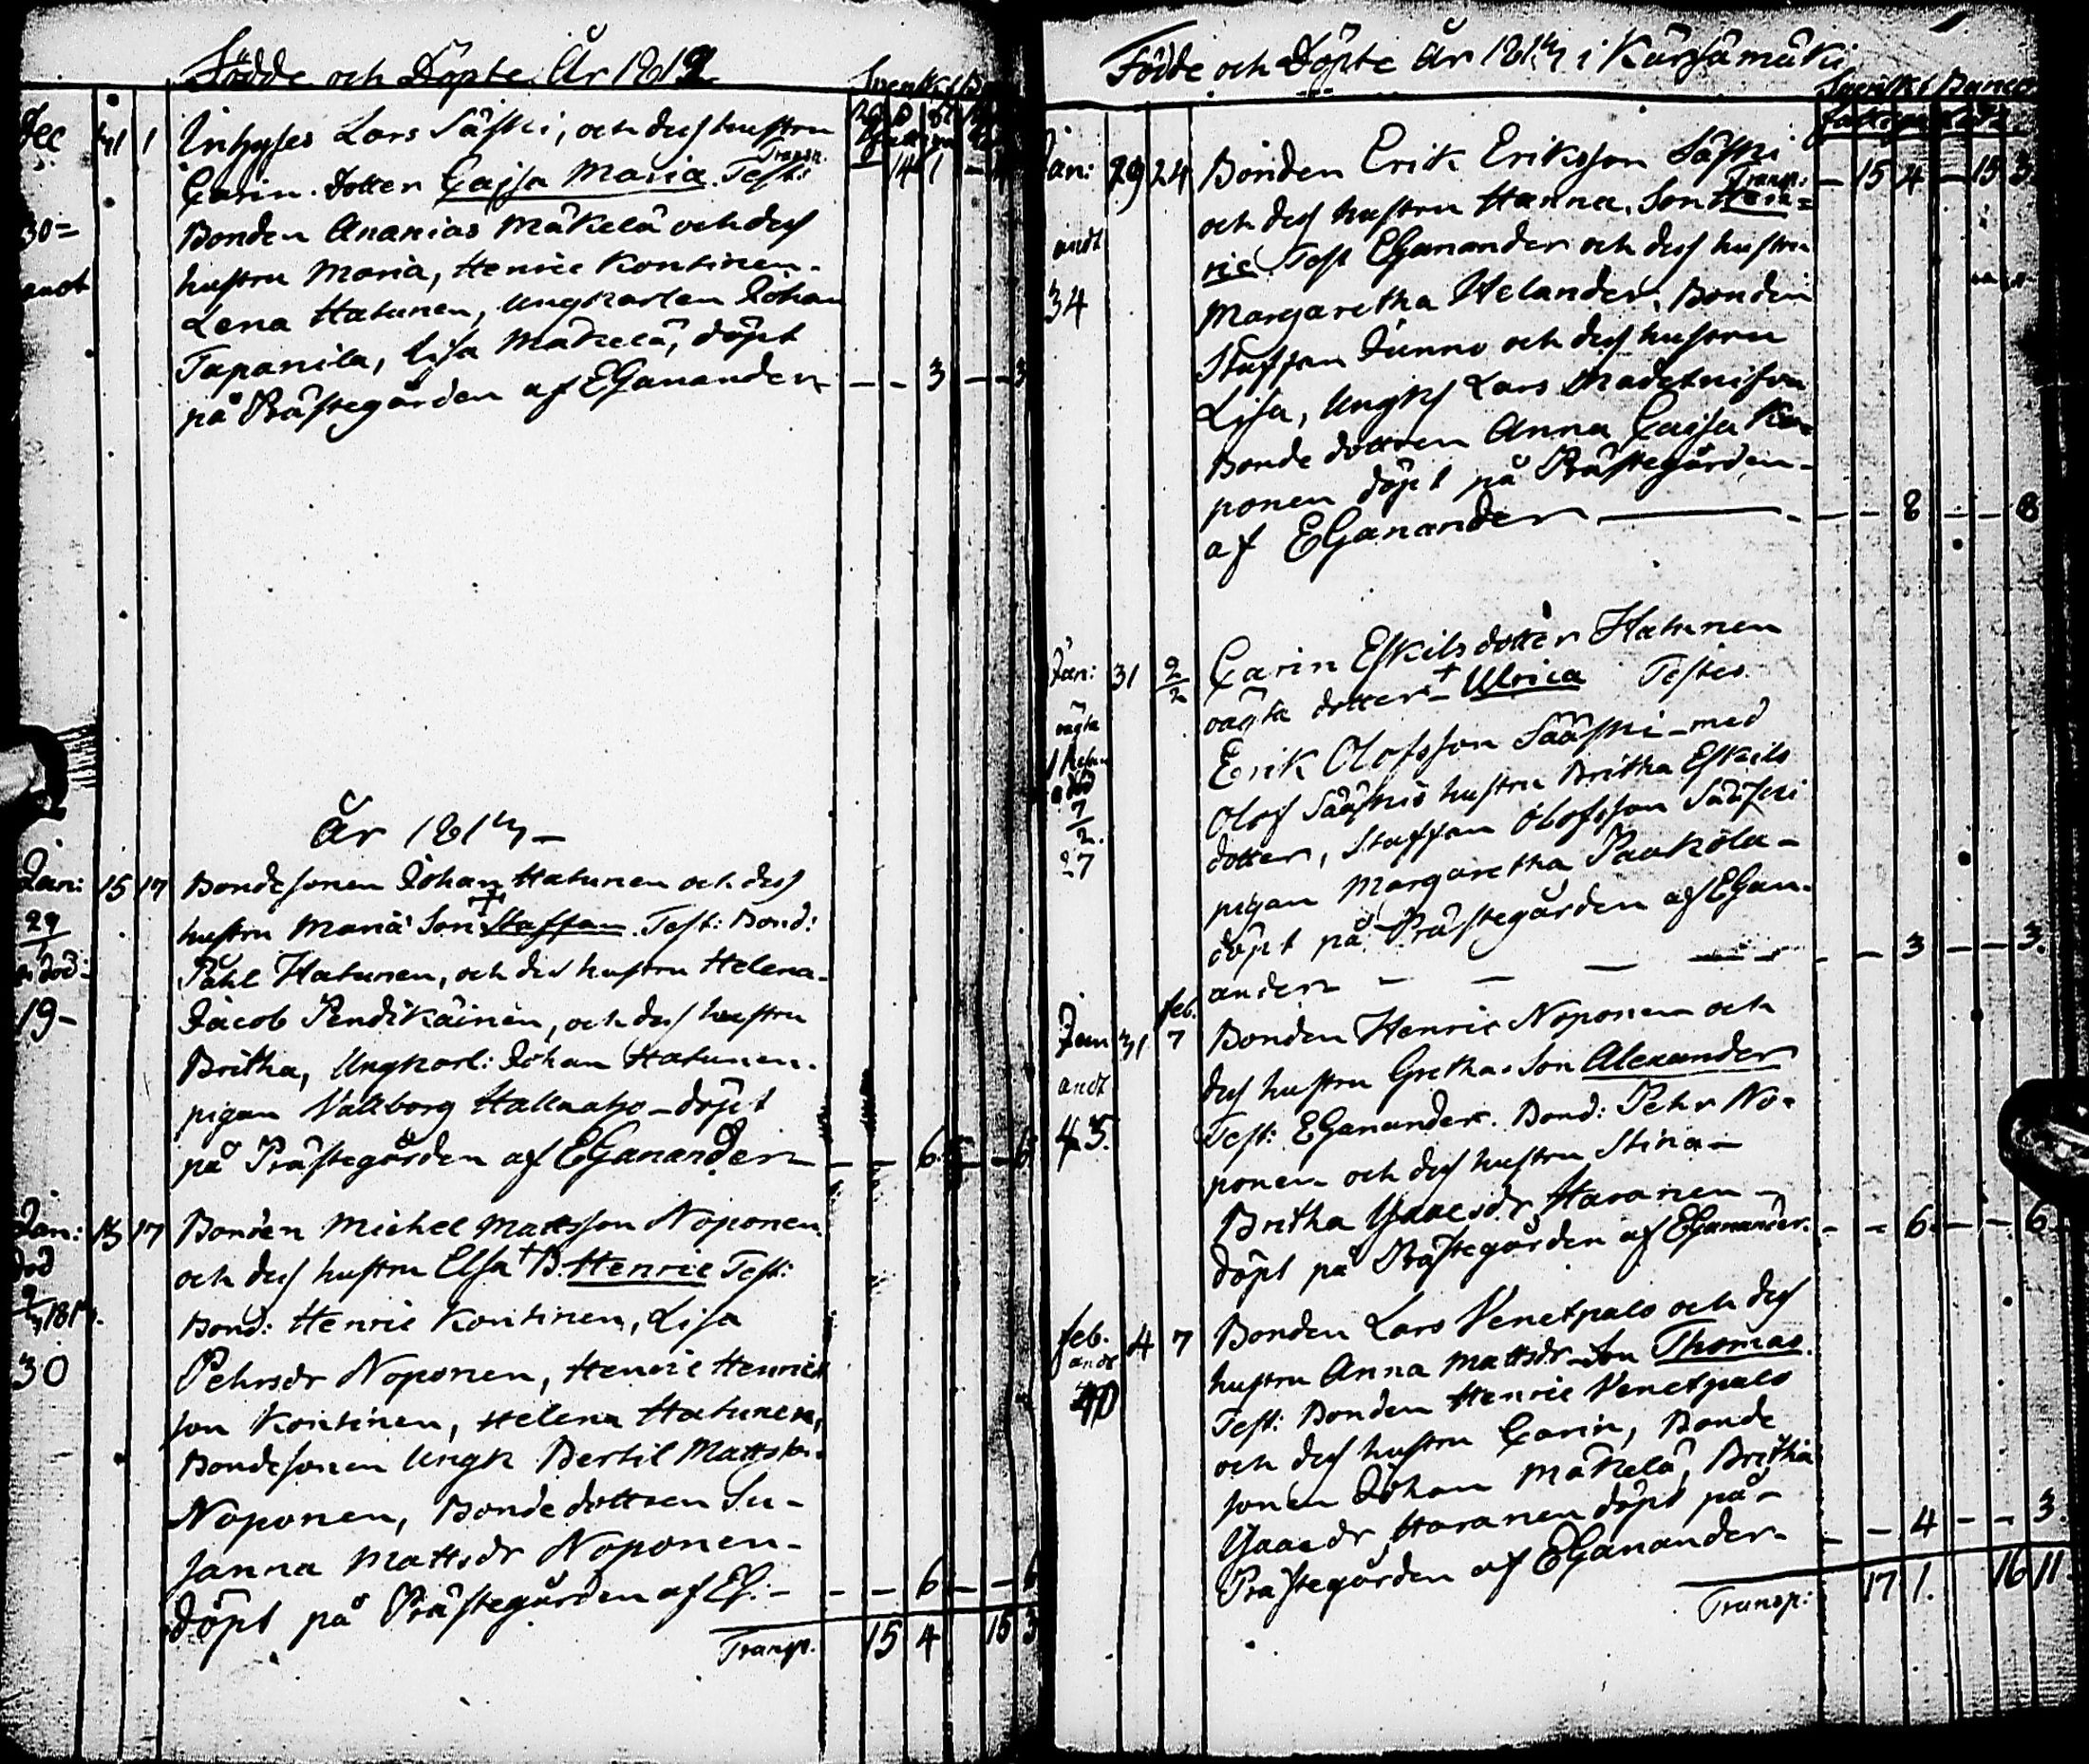 Födde och Döpte År 1812
Dec 31 1 Inhyses Lars Säski, och dess hustru
Carin. dotter Cajsa Maria. Test:
Transp. 14 1
30 Bonden Ananias Mäkelä och dess
hustru Maria, Henric Kontinen.
Lena Hatunen, Ungkarlen Johan
Tapanila, Lisa Mäkelä, döpt
på Prästegården af EGanander — — 3 — — 3
År 1813 —
Jan: 15 17 Bondesonen Johan Hatunen och dess
29/1 hustru Maria Son + Staffan. Test: Bond:
död: Påhl Hatunen, och des hustru Helena.
19 — Jacob Pendikäinen, och dess hustru
Britha, Ungkarl: Johan Hatunen.
pigan Vallborg Hallaaho — döpt
på Prästegården af EGanander — — 6 — — 6
Jan: 15 17 Bonden Michel Mattsson Noponen
död och dess hustru Elsa + B. Henric Test:
Bond: Henric Kontinen, Lisa
30 Pehrsdr Noponen, Henric Henrics
son Kontinen, Helena Hatunen,
Bondesonen Ungk Bertil Mattsson
Noponen, Bondedottren Su-
sanna Mattsdr Noponen —
döpt på Prästegården af EG: — — — 6 — — 6
Transp. 15 4 15 3
Födde och Döpte År 1813 i Kärsämäki
Svenskt Banco
Jan: 29 24 Bonden Erik Eriksson Säski
Transp: — 15 4 — 15 3
och dess hustru Hanna. Son Hen=
andt ric. Test EGanander och dess hustru
34 Margaretha Helander, Bonden
Staffan Junno och dess hustru
Lisa, Ungk Lars Madetnisson
Bonde dottren Anna Cajsa No-
ponen döpt på Prästegården —
af EGanander — — — 8 — — 8
Jan: 31 2/2 Carin Eskilsdotter Hatunen
oägta dotter — + Ulrica Testes
oägta Erik Olofsson Sääski — med
Olof Sääskis hustru Britha Eskils
död 7/2. dotter, Staffan Olofsson Sääski
27 pigan Margaretha Paakola —
döpt på Prästegården af EGan-
ander — — — — — 3 — — 3.
Jan 31 feb. 7 Bonden Henric Noponen och
andt dess hustru Gretha. Son Alexander
43. Test: EGanander. Bond: Pehr No-
ponen och dess hustru Stina —
Britha Ysaacsdr Haranen —
döpt på Prästegården af EGanander. — — 6 — — 6
feb. 4 7 Bonden Lars Venetpalo och dess
andt hustru Anna Mattsdr — Son Thomas.
40 Test: Bonden Henric Venetpalo
och dess hustru Carin, Bonde
sonen Johan Mäkelä, Britha
Ysaacdr Haranen döpt på —
Prästegården af EGanander — — 4 — — 3.
Transp: 17 1. 16 11